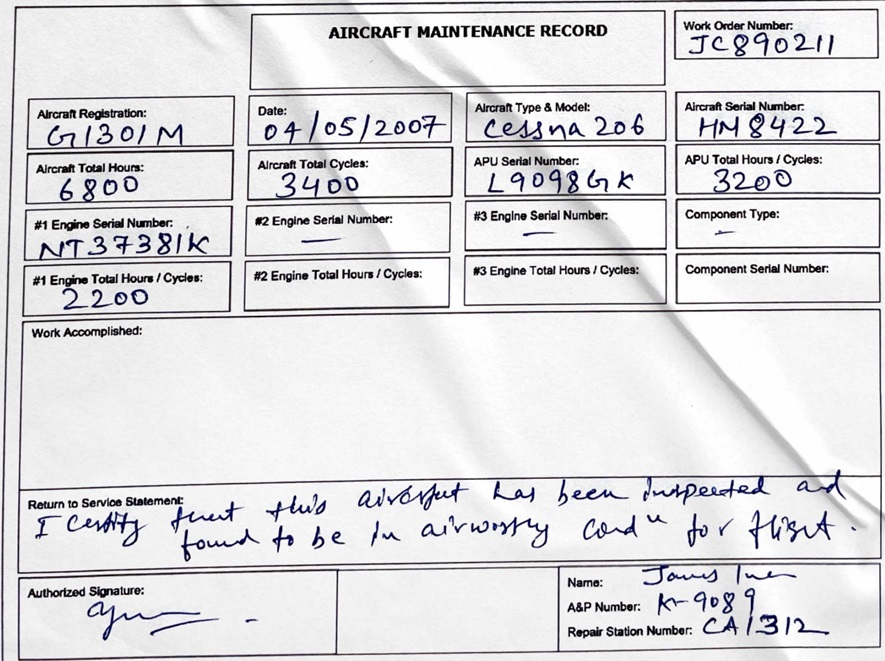 AIRCRAFT MAINTENANCE RECORD
Work Order Number:
JC890211
Aircraft Registration:
G1301M
Date:
04/05/2007
Aircraft Type & Model:
Cessna 206
Aircraft Serial Number:
HM8422
Aircraft Total Hours:
6800
Aircraft Total Cycles:
3400
APU Serial Number:
L9098GK
APU Total Hours / Cycles:
3200
#1 Engine Serial Number:
NT37381K
#2 Engine Serial Number:
—
#3 Engine Serial Number:
—
Component Type:
—
#1 Engine Total Hours / Cycles:
2200
#2 Engine Total Hours / Cycles:
#3 Engine Total Hours / Cycles:
Component Serial Number:
Work Accomplished:
Return to Service Statement:
I certify that this aircraft has been inspected and
found to be in airworthy condn for flight.
Authorized Signature:
Name: James
A&P Number: K-9089
Repair Station Number: CA1312